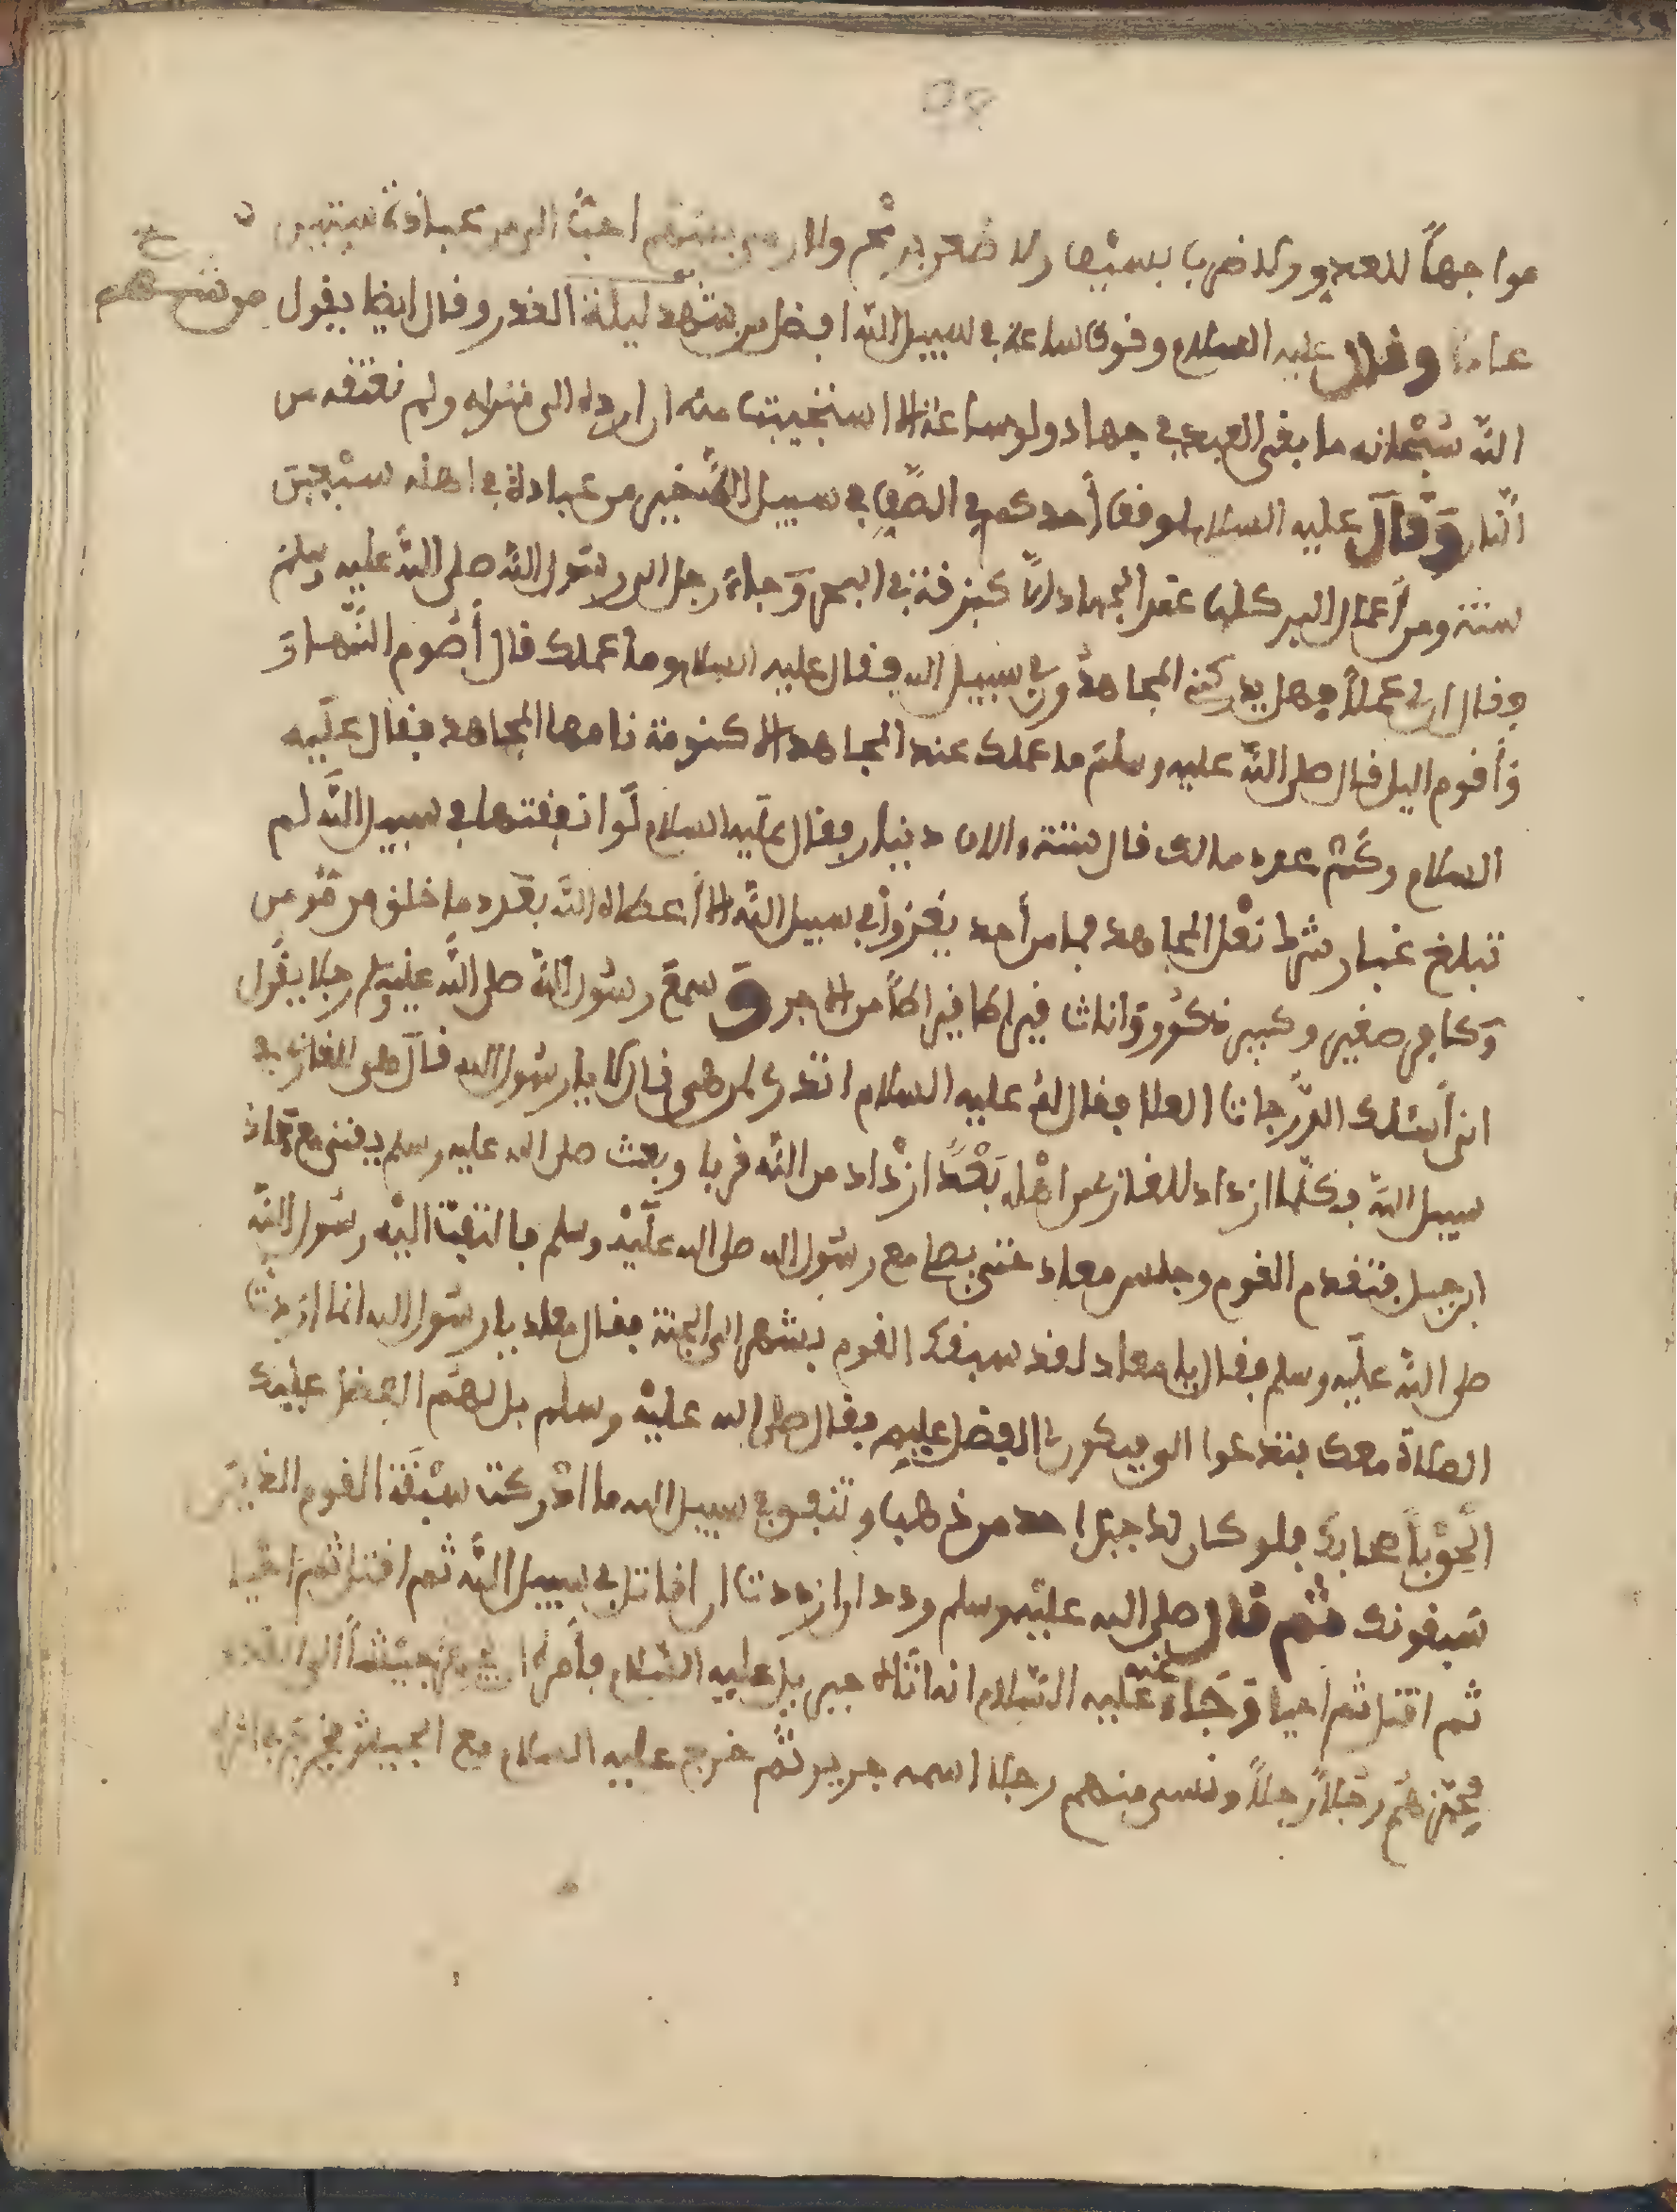 مواجها للعدو ولا ضرب بسيف ولا طعن برمح ولا رمى بسهم احب الي من عبادة ستين
عاما وقال عليه السلام وقوف ساعة في سبيل الله افضل من شهد ليلة القدر وقال ايضا يقول من شهر
الله سبحانه ما بقي العبد في جهاد ولو ساعة الا استحييت منه ان ارده الى منزله ولم نعتقه من
النار وقال عليه السلام لوقفة أحدكم في الصف في سبيل الله خير من عبادة في اهله سبعين
سنة ومن أعمال البر كلها عند الجهاد الا كبزقة في البحر وجاء رجل الى رسول الله صلى الله عليه وسلم
فقال ان لي عملا فهل يدركني المجاهدون في سبيل الله فقال عليه السلام وما عملك قال أصوم النهار
وأقوم اليل قال صلى الله عليه وسلم ما عملك عند المجاهد الا كنومة نامها المجاهد فقال عليه
السلام وكم عدد مالك قال ستة ءالاف دينار فقال عليه السلام لو انفقتها في سبيل الله لم
تبلغ غبار شرط نعل المجاهد فما من أحد يغزوا في سبيل الله الا أعطاه الله بعدد ما خلف من مؤمن
وكافر صغير وكبير ذكور واناث قيراطا قيراطا من الاجر وسمع رسول الله صلى الله عليه وسلم رجلا يقول
اني أسئلك الدرجات العلا فقال له عليه السلام اتدري لمن هي قال لا يا رسول الله قال هي للغازي في
سبيل الله فكلما ازداد للغازي من اهله بعدا ازداد من الله قربا وبعث صلى الله عليه وسلم معاذ
ابن جبل فتقدم القوم وجلس معاذ حتى يصلي مع رسول الله صلى الله عليه وسلم فالتفت اليه رسول الله
صلى الله عليه وسلم فقال يا معاذ لقد سبقك القوم بشهر الى الجنة فقال معاذ يا رسول الله انما اردت
الصلاة معك فتدعوا لي فيكون لي الفضل عليهم فقال صلى الله عليه وسلم بل لهم الفضل عليك
فلو كان لك جبل احد من ذهب وتنفق في سبيل الله ما ادركت سبقة القوم الذين
سبقونك ثم قال صلى الله عليه وسلم وددت ان اقاتل في سبيل الله ثم اقتل ثم احيا
ثم اقتل ثم احيا وجاء عنه عليه السلام انه اتاه جبريل عليه السلام فأمره ان يجهز جيشا
فجهزهم رجلا رجلا ونسي منهم رجلا اسمه جرير ثم خرج عليه السلام مع الجيش